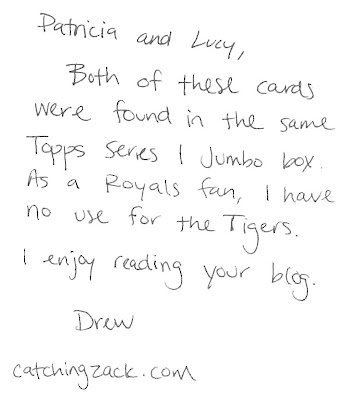 Patricia and Lucy,
Both of these cards
were found in the same
Topps Series 1 Jumbo box.
As a Royals fan, I have
no use for the Tigers.
I enjoy reading your blog.
Drew
catchingzack.com